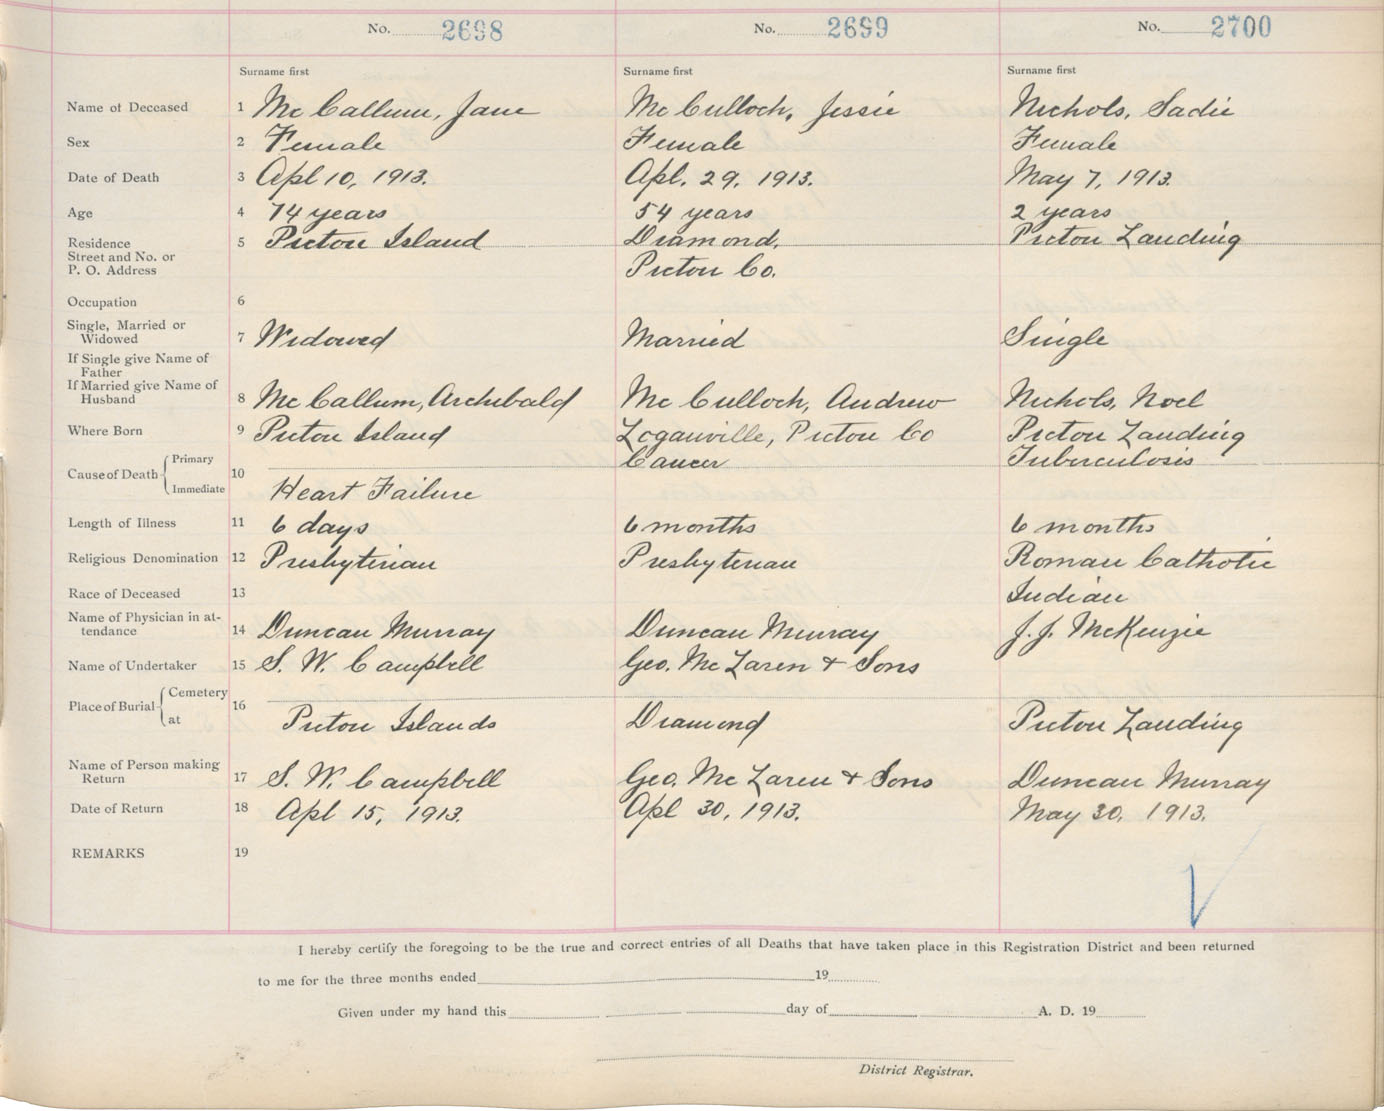 No. 2698 No. 2699 No. 2700
Surname first Surname first Surname first
Name of Deceased 1 Mc Callum, Jane Mc Culloch, Jessie Nichols, Sadie
Sex 2 Female Female Female
Date of Death 3 Apl 10, 1913. Apl. 29, 1913. May 7, 1913.
Age 4 74 years 54 years 2 years
Residence 5 Pictou Island Diamond, Pictou Landing
Street and No. or
P. O. Address Pictou Co.
Occupation 6
Single, Married or
Widowed 7 Widowed Married Single
If Single give Name of
Father
If Married give Name of
Husband 8 Mc Callum, Archibald Mc Culloch, Andrew Nichols, Noel
Where Born 9 Pictou Island Loganville, Pictou Co Pictou Landing
Cause of Death Primary 10 Cancer Tuberculosis
Immediate Heart Failure
Length of Illness 11 6 days 6 months 6 months
Religious Denomination 12 Presbyterian Presbyterian Roman Catholic
Race of Deceased 13 Indian
Name of Physician in at-
tendance 14 Duncan Murray Duncan Murray J. J. McKenzie
Name of Undertaker 15 S. W. Campbell Geo. Mc Laren & Sons
Place of Burial Cemetery 16
at Pictou Islands Diamond Pictou Landing
Name of Person making
Return 17 S. W. Campbell Geo. Mc Laren & Sons Duncan Murray
Date of Return 18 Apl 15, 1913. Apl 30, 1913. May 30, 1913.
REMARKS 19
I hereby certify the foregoing to be the true and correct entries of all Deaths that have taken place in this Registration District and been returned
to me for the three months ended 19
Given under my hand this day of A. D. 19
District Registrar.